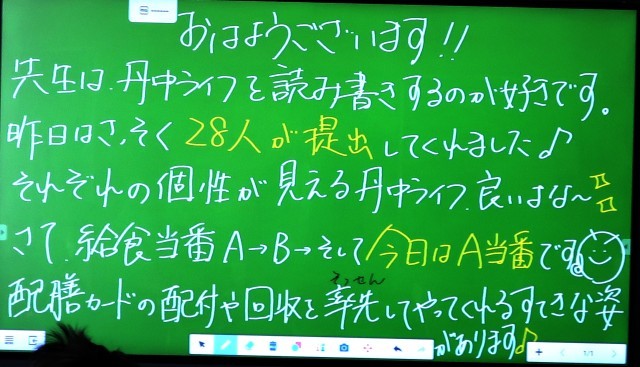 おはようございます!!
先生は、丹中ライフを読み書きするのが好きです。
昨日はさっそく28人が提出してくれました♪
それぞれの個性が見える丹中ライフ、良いはな〜
さて、給食当番A→B→そして今日はA当番です。
そっせん
配膳カードの配付や回収を率先してやってくれるすてきな姿
があります♪
1/1